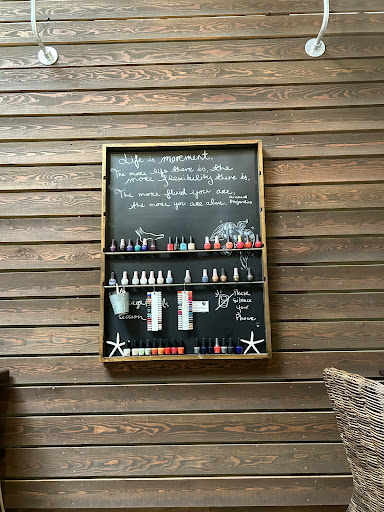 Life is movement.
The more life there is, the
more flexibility there is.
The more fluid you are,
the more you are alive.
Arnaud
Desjardins
Please
Silence
Your
Phone
session